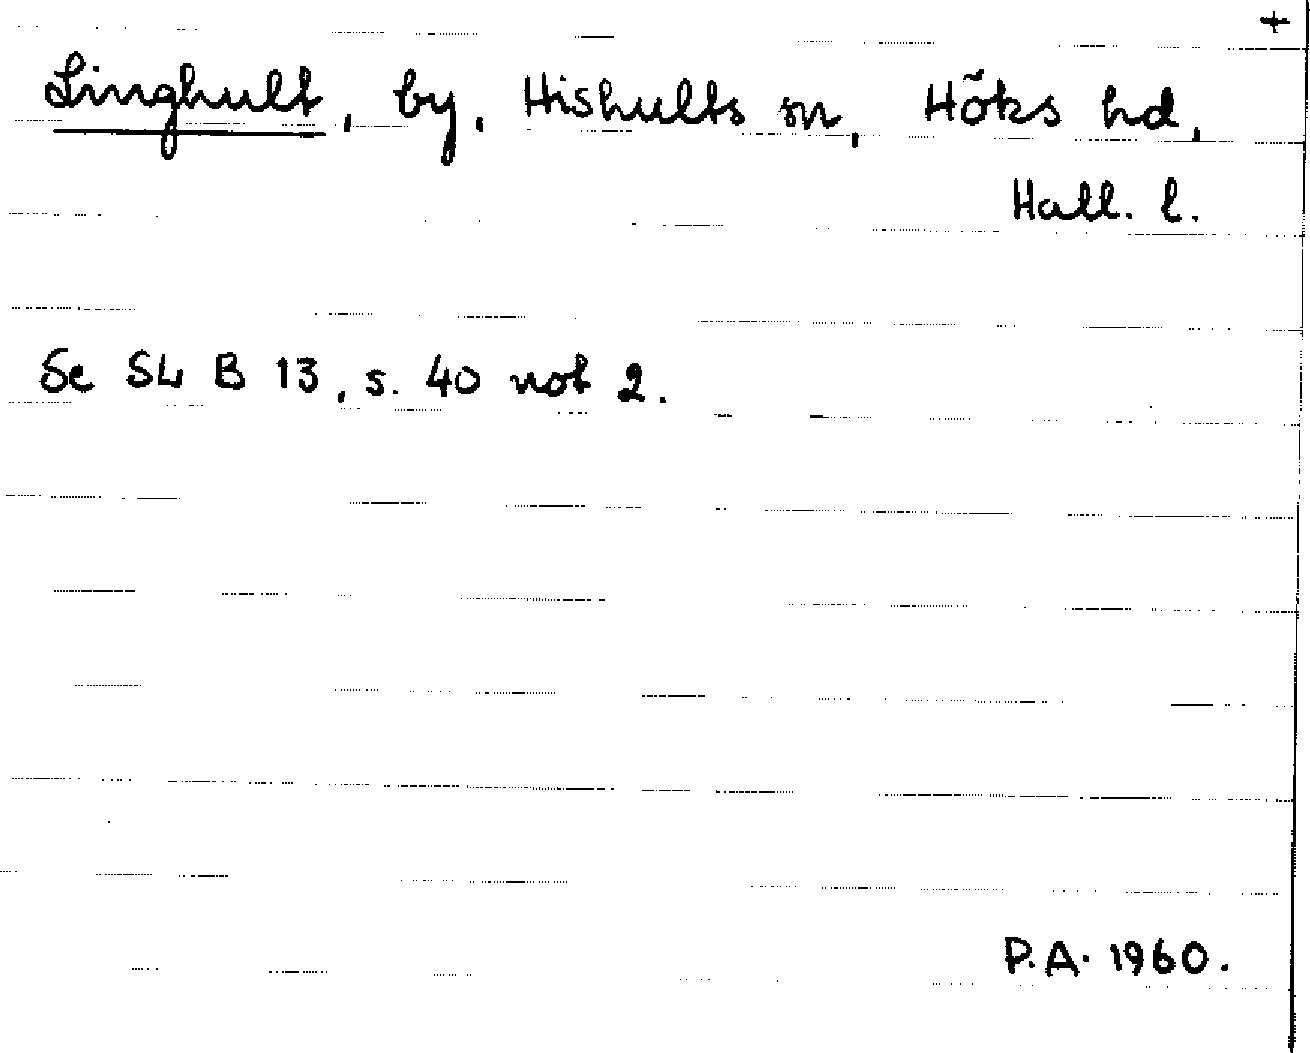 +
Linghult, by, Hishults sn, Höks hd,
Hall. l.
Se S4 B 13, s. 40 not 2.
P.A. 1960.